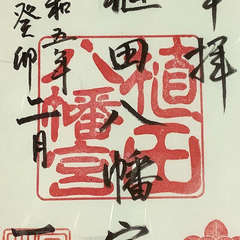 奉拝
植田八幡宮
和五年
癸卯
二月
植田
八幡宮